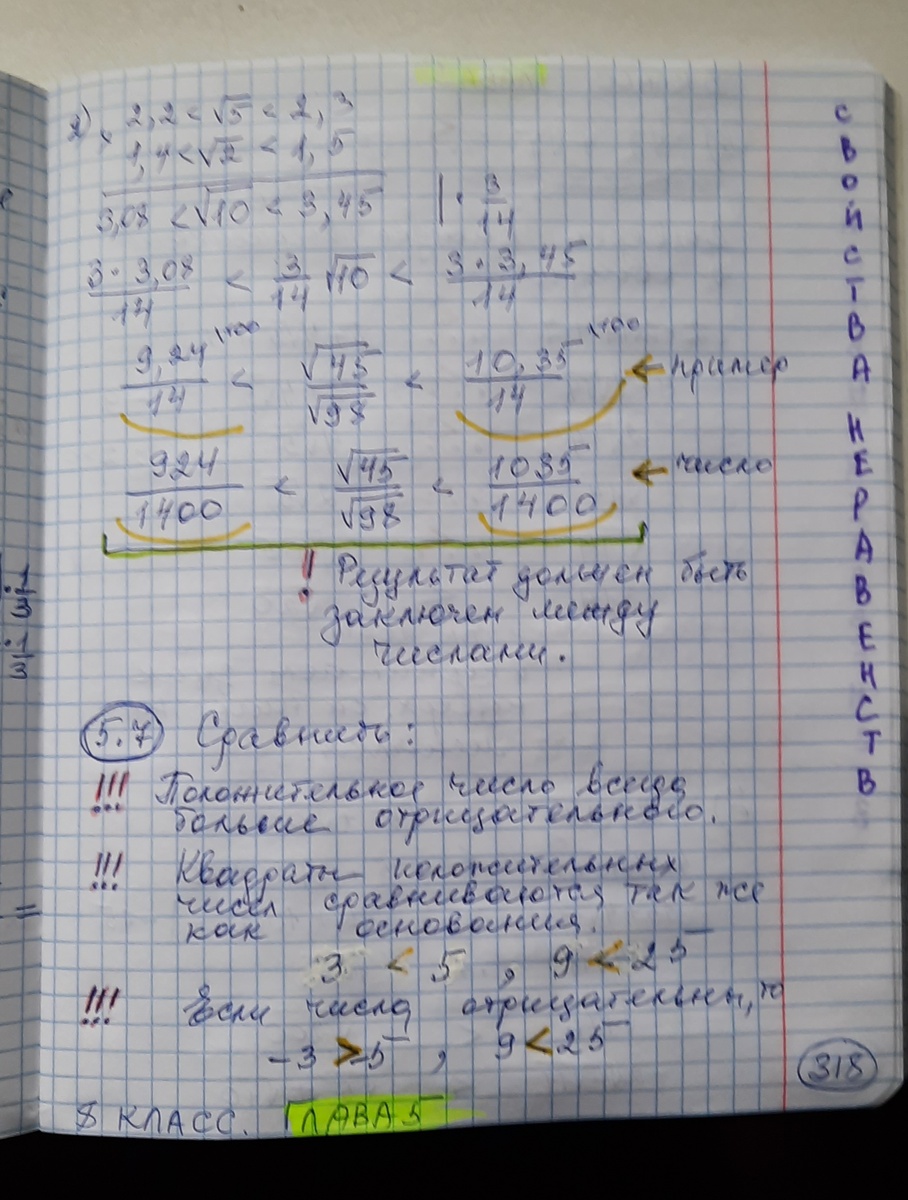 2) × 2,2 < √5 < 2,3
1,4 < √2 < 1,5
3,08 < √10 < 3,45 | · 3/14
3 · 3,08/14 < 3/14 √10 < 3 · 3,45/14
9,24\100/14 < √45/√98 < 10,35\100/14 ← пример
924/1400 < √45/√98 < 1035/1400 ← число
! Результат должен быть
заключен между
числами.
5.7 Сравнить:
!!! Положительное число всегда
больше отрицательного.
!!! Квадраты положительных
чисел сравниваются так же
как основания.
3 < 5 , 9 < 25
!!! Если числа отрицательны, то
-3 > -5 , 9 < 25
8 КЛАСС. ГЛАВА 5
318
СВОЙСТВА НЕРАВЕНСТВ
· 1/3
· 1/3
=